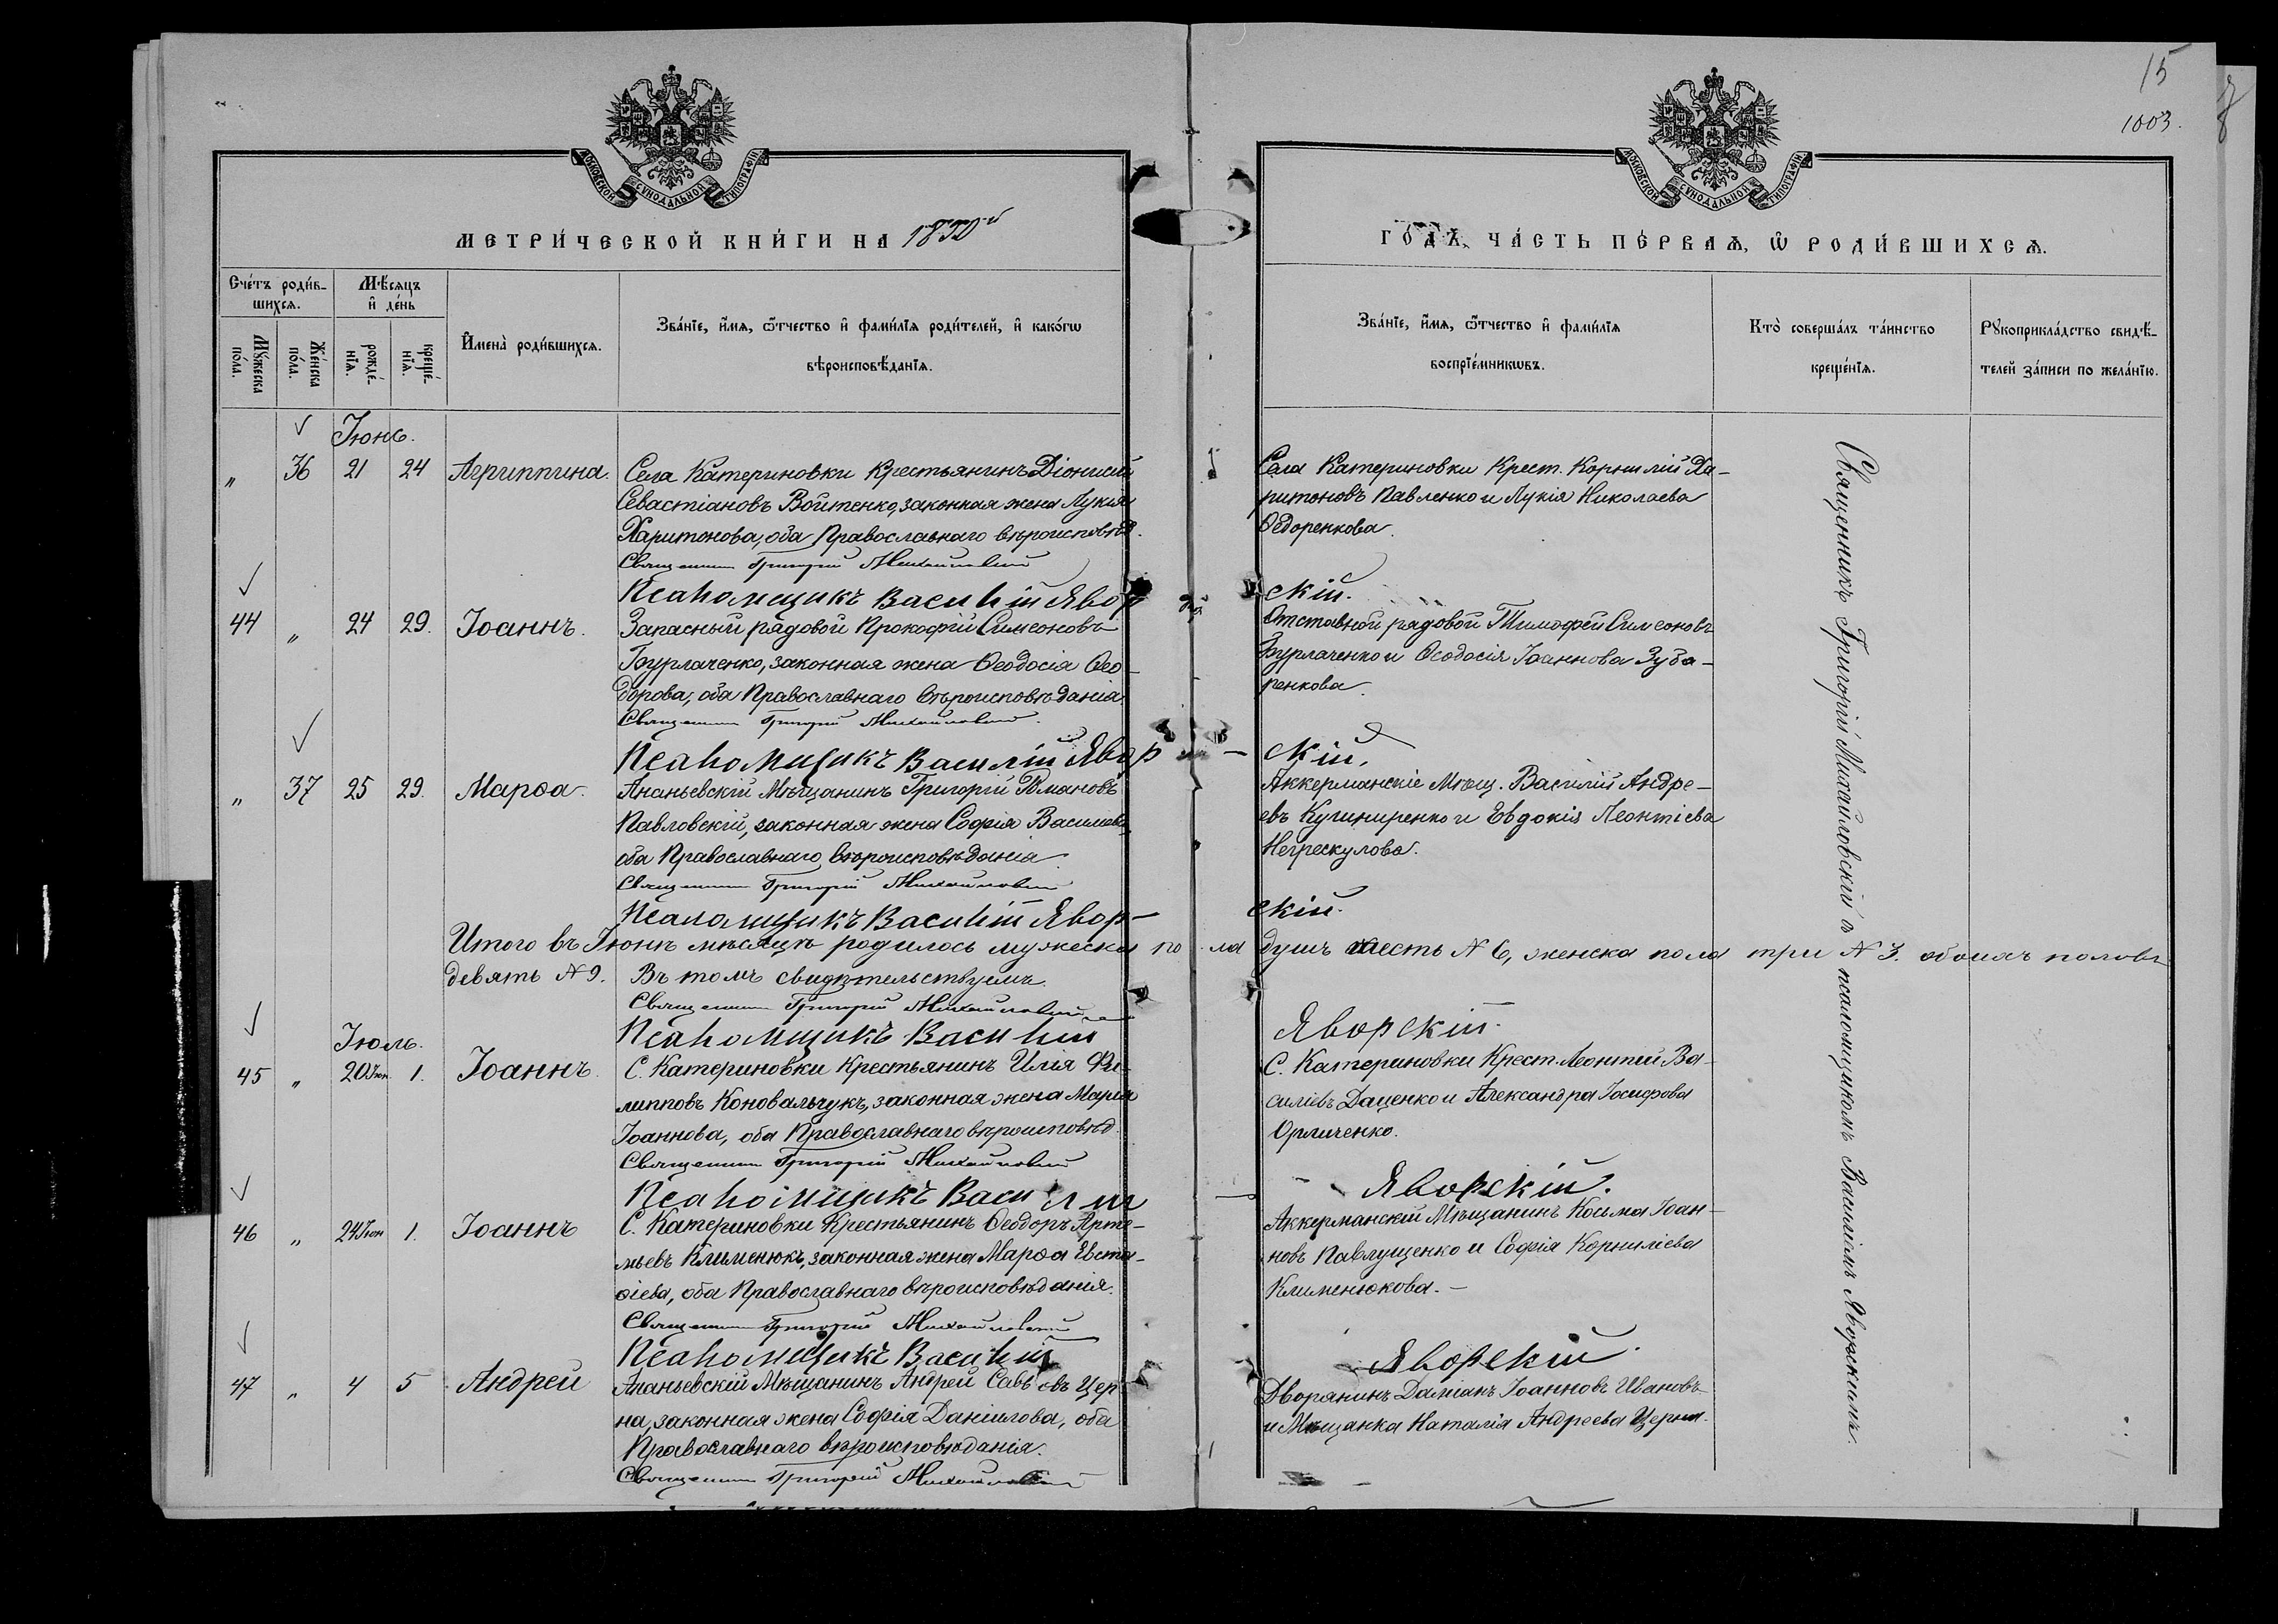 15
1003.
МОСКОВСКОЙ СѴНОДАЛЬНОЙ ТИПОГРАФІИ
МОСКОВСКОЙ СѴНОДАЛЬНОЙ ТИПОГРАФІИ
МЕТРИ́ЧЕСКОЙ КНИ́ГИ НА 1890й
ГО́ДЪ, ЧА́СТЬ ПЕ́РВАѦ, Ѽ РОДИ́ВШИХСѦ.
Сче́тъ роди́в-
шихсѧ.
Мѣ́сѧцъ
и҆ де́нь
Мꙋ́жеска
по́ла.
Же́нска
по́ла.
рожде́-
нїѧ.
креще́-
нїѧ.
И҆мена̀ роди́вшихсѧ.
Зва́нїе, и҆́мѧ, ѻ҆́тчество и҆ фами́лїѧ роди́телей, и҆ како́гѡ
вѣроисповѣ́данїѧ.
Зва́нїе, и҆́мѧ, ѻ҆́тчество и҆ фами́лїѧ
воспрїе́мникѡвъ.
Кто̀ соверша́лъ та́инство
креще́нїѧ.
Рꙋкоприкла́дство свидѣ́-
телей за́писи по жела́нїю.
Іюнь.
„ 36 21 24 Агриппина. Села Катериновки Крестьянинъ Діонисій
Севастіановъ Войтенко, законная жена Лукія
Харитонова, оба Православнаго вѣроисповѣд.
Священникъ Григорій Михайловскій
Псаломщикъ Василій Явор
Села Катериновки Крест. Корнилій Ха-
ритоновъ Павленко и Лукія Николаева
Ѳедоренкова.
скій.
44 „ 24 29. Іоаннъ. Запасный рядовой Прокофій Симеоновъ
Бурлаченко, законная жена Ѳеодосія Ѳео-
дорова, оба Православнаго вѣроисповѣданія.
Священникъ Григорій Михайловскій
Псаломщикъ Василій Явор
Отставной рядовой Тимофей Симеоновъ
Бурлаченко и Ѳеодосія Іоаннова Зуба-
ренкова.
скій.
„ 37 25 29. Марѳа. Ананьевскій Мѣщанинъ Григорій Романовъ
Павловскій, законная жена Софія Василіева,
оба Православнаго вѣроисповѣданія.
Священникъ Григорій Михайловскій
Псаломщикъ Василій Явор-
Аккерманскіе Мѣщ. Василій Андре-
евъ Кушниренко и Евдокія Леонтіева
Негрескулова.
скій.
Итого въ Іюнѣ мѣсяцѣ родилось мужеска пола душъ шесть № 6, женска пола три № 3. обоихъ половъ
девять № 9. Въ томъ свидѣтельствуемъ.
Священникъ Григорій Михайловскій
Псаломщикъ Василій Яворскій.
Іюль.
45 „ 20 Іюн. 1. Іоаннъ. С. Катериновки Крестьянинъ Илія Фи-
липповъ Коновальчукъ, законная жена Марія
Іоаннова, оба Православнаго вѣроисповѣд.
Священникъ Григорій Михайловскій
Псаломщикъ Василій
С. Катериновки Крест. Леонтій Ва-
силіевъ Даценко и Александра Іосифова
Орличенко.
Яворскій.
46 „ 24 Іюн 1. Іоаннъ С. Катериновки Крестьянинъ Ѳеодоръ Арте-
мьевъ Клименюкъ, законная жена Марѳа Евста-
ѳіева, оба Православнаго вѣроисповѣданія.
Священникъ Григорій Михайловскій
Псаломщикъ Василій
Аккерманскій Мѣщанинъ Косьма Іоан-
новъ Павлущенко и Софія Корниліева
Клименюкова.-
Яворскій.
47 „ 4 5 Андрей Ананьевскій Мѣщанинъ Андрей Саввовъ Цер-
на, законная жена Софія Даніилова, оба
Православнаго вѣроисповѣданія.
Священникъ Григорій Михайловскій
Дворянинъ Даміанъ Іоанновъ Ивановъ
и Мѣщанка Наталія Андреева Церна.
Священникъ Григорій Михайловскій съ псаломщикомъ Василіемъ Яворскимъ.